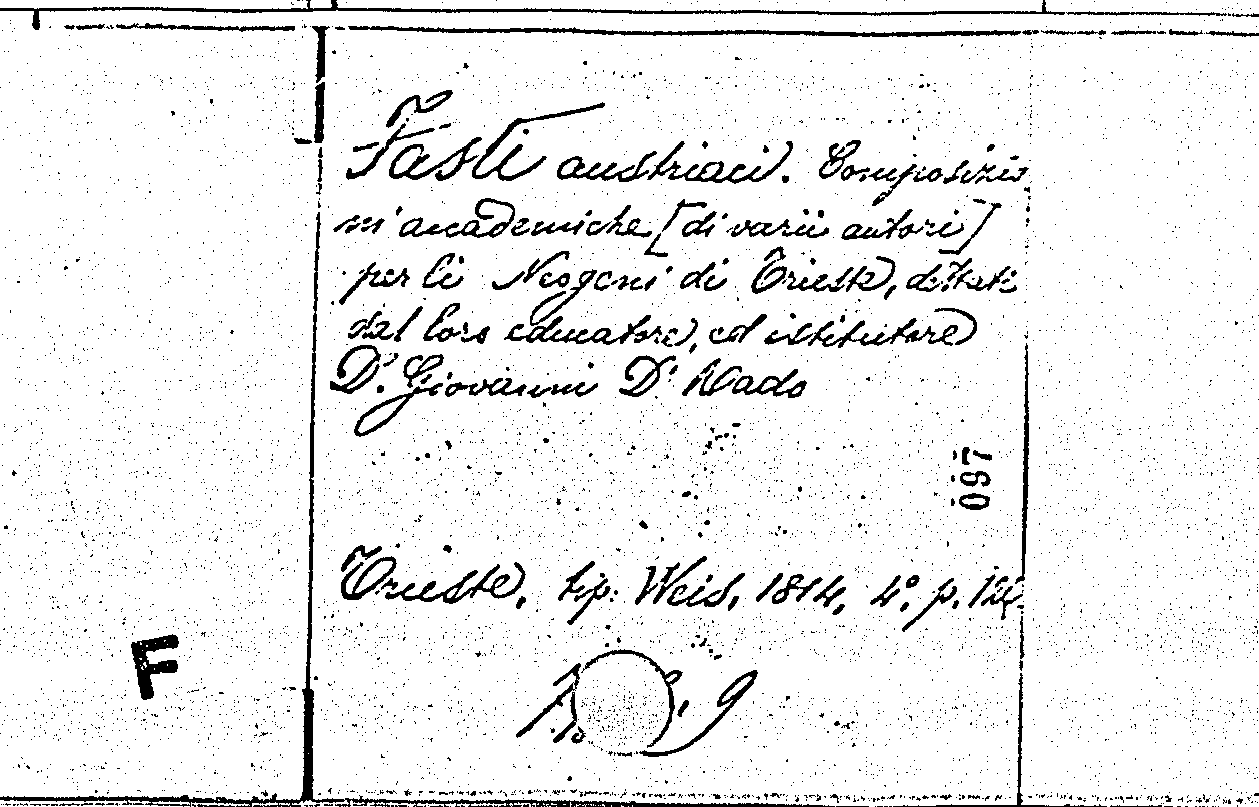 Fasti austriaci. Composizio
ni accademiche [di varii autori]
per li Neogeni di Trieste, dettati
dal loro educatore, ed istitutore
Dr. Giovanni Dr Rado
097
Trieste, tip. Weis, 1814, 4°. p. 124.
F
9